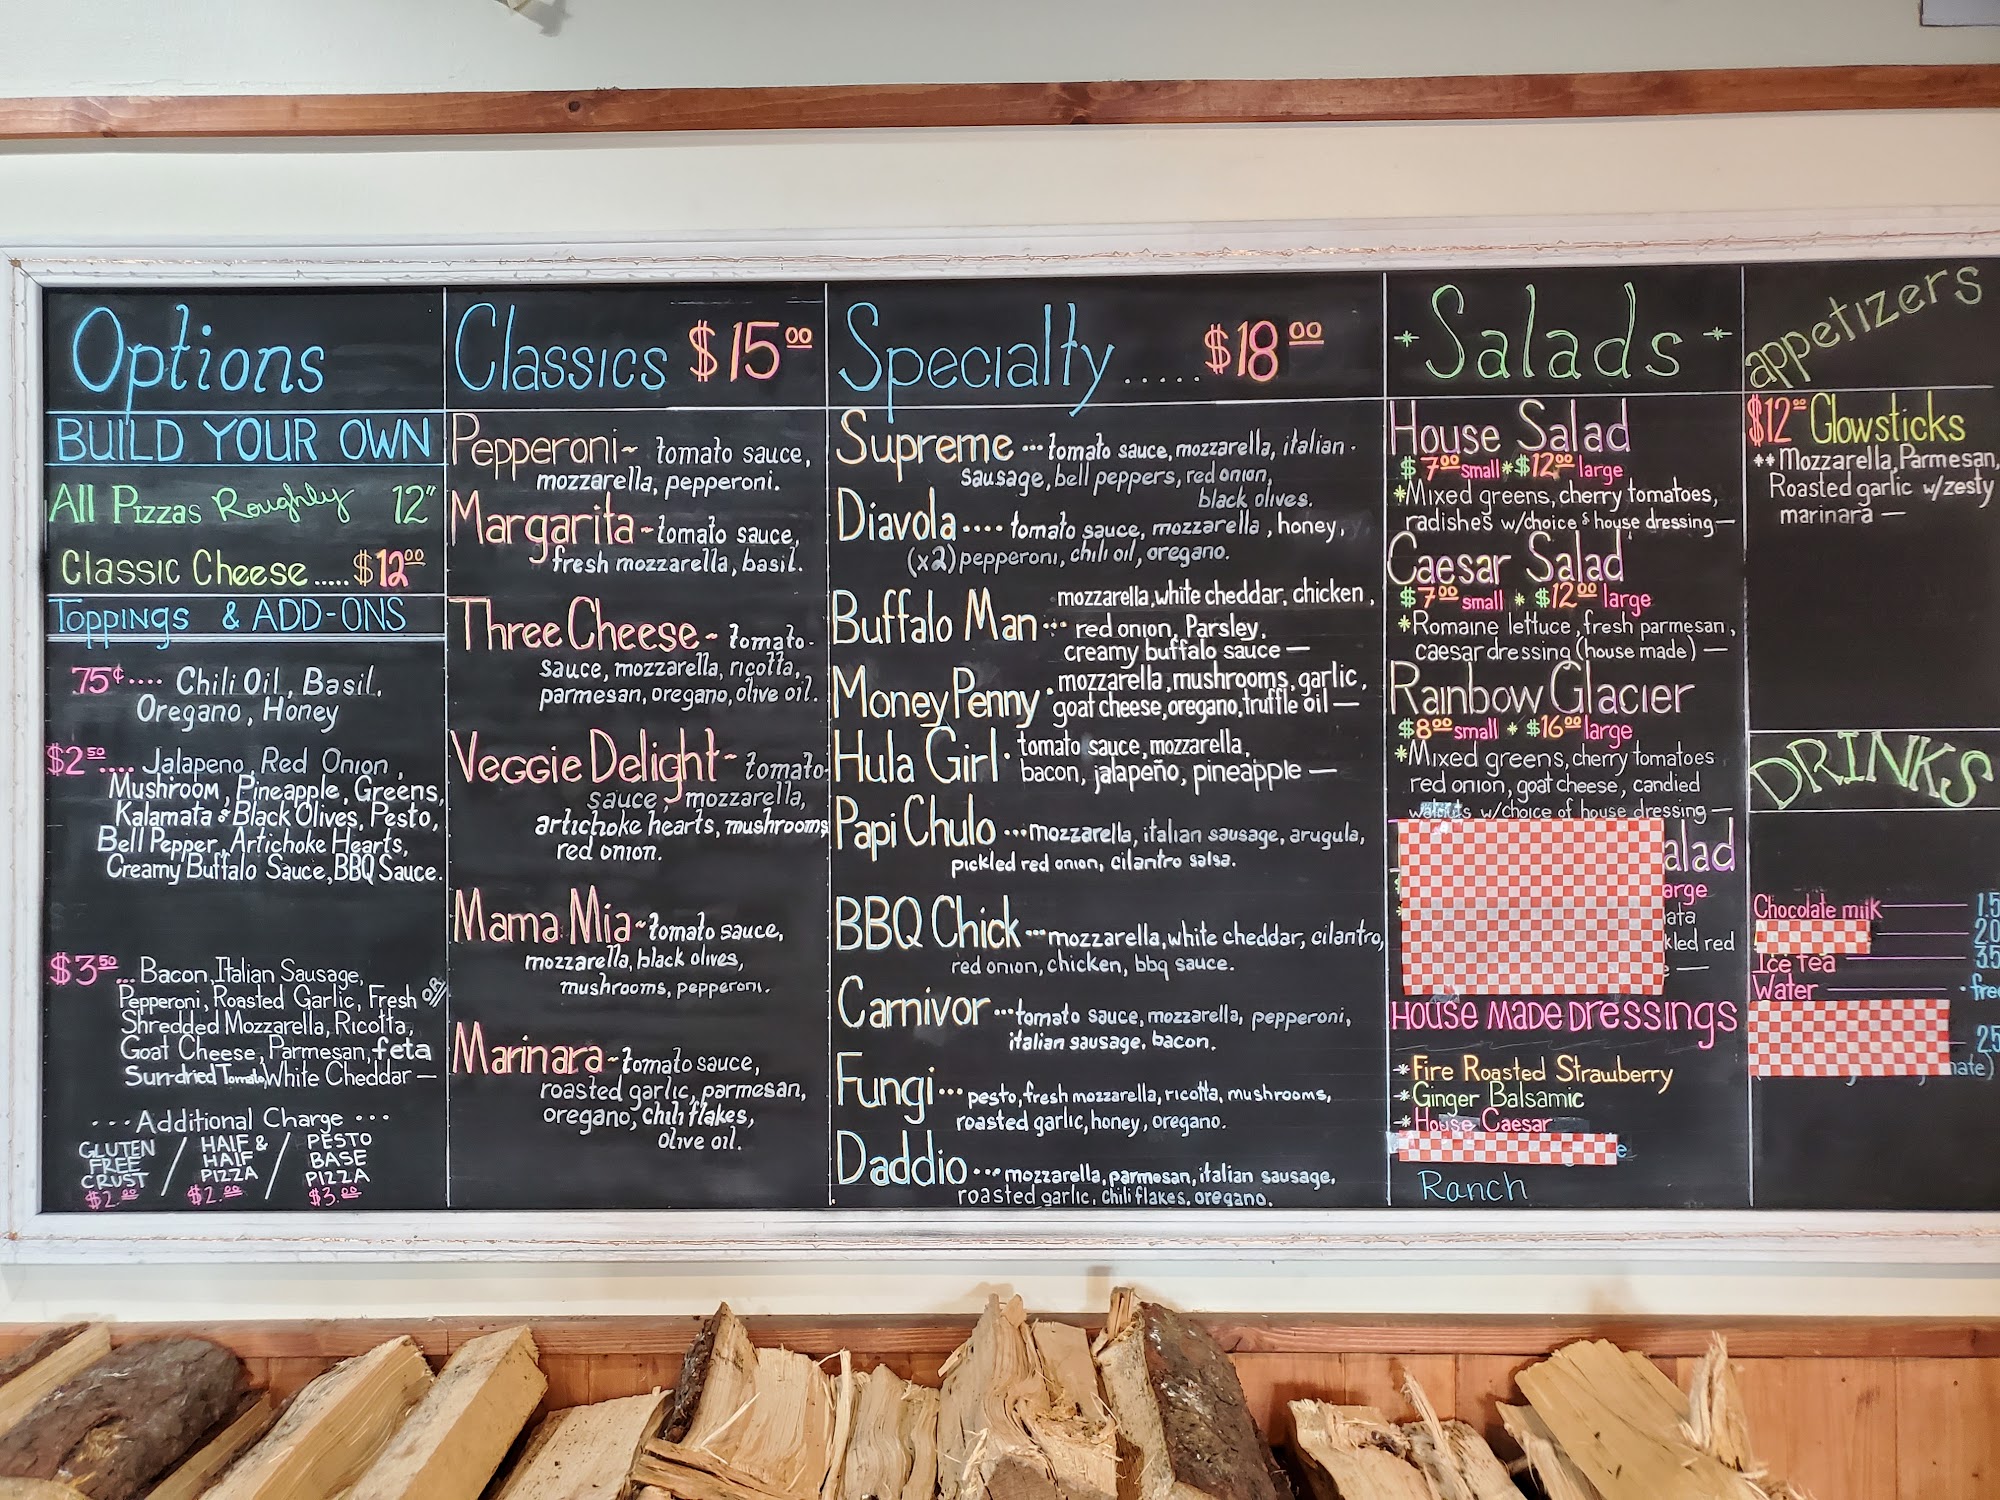 Options
BUILD YOUR OWN
All Pizzas Roughly 12"
Classic Cheese ..... $12.00
Toppings & ADD-ONS
75¢.... Chili Oil, Basil,
Oregano, Honey
$2.50.... Jalapeno, Red Onion,
Mushroom, Pineapple, Greens,
Kalamata & Black Olives, Pesto,
Bell Pepper, Artichoke Hearts,
Creamy Buffalo Sauce, BBQ Sauce.
$3.50... Bacon, Italian Sausage,
Pepperoni, Roasted Garlic, Fresh or/
Shredded Mozzarella, Ricotta,
Goat Cheese, Parmesan, feta
Sun-dried Tomato, White Cheddar —
... Additional Charge ...
GLUTEN FREE CRUST $2.00 / HAlF & HAlF PIZZA $2.00 / PESTO BASE PIZZA $3.00
Classics $15.00
Pepperoni ~ tomato sauce,
mozzarella, pepperoni.
Margarita ~ tomato sauce,
fresh mozzarella, basil.
Three Cheese ~ tomato-
sauce, mozzarella, ricotta,
parmesan, oregano, olive oil.
Veggie Delight ~ tomato-
sauce, mozzarella,
artichoke hearts, mushrooms
red onion.
Mama Mia ~ tomato sauce,
mozzarella, black olives,
mushrooms, pepperoni.
Marinara ~ tomato sauce,
roasted garlic, parmesan,
oregano, chili flakes,
olive oil.
Specialty ..... $18.00
Supreme ... tomato sauce, mozzarella, italian-
sausage, bell peppers, red onion,
black olives.
Diavola .... tomato sauce, mozzarella, honey,
(x2) pepperoni, chili oil, oregano.
Buffalo Man ... mozzarella, white cheddar, chicken,
red onion, Parsley,
creamy buffalo sauce —
Money Penny . mozzarella, mushrooms, garlic,
goat cheese, oregano, truffle oil —
Hula Girl . tomato sauce, mozzarella,
bacon, jalapeño, pineapple —
Papi Chulo ... mozzarella, italian sausage, arugula,
pickled red onion, cilantro salsa.
BBQ Chick ... mozzarella, white cheddar, cilantro,
red onion, chicken, bbq sauce.
Carnivor ... tomato sauce, mozzarella, pepperoni,
italian sausage, bacon.
Fungi ... pesto, fresh mozzarella, ricotta, mushrooms,
roasted garlic, honey, oregano.
Daddio ... mozzarella, parmesan, italian sausage,
roasted garlic, chili flakes, oregano.
* Salads *
House Salad
$7.00 small * $12.00 large
*Mixed greens, cherry tomatoes,
radishes w/choice of house dressing —
Caesar Salad
$7.00 small * $12.00 large
*Romaine lettuce, fresh parmesan,
caesar dressing (house made) —
Rainbow Glacier
$8.00 small * $16.00 large
*Mixed greens, cherry tomatoes
red onion, goat cheese, candied
walnuts w/choice of house dressing —
alad
arge
ata
kled red
House Made Dressings
*Fire Roasted Strawberry
*Ginger Balsamic
*House Caesar
e
Ranch
appetizers
$12.00 Glowsticks
** Mozzarella, Parmesan,
Roasted garlic w/zesty
marinara —
DRINKS
Chocolate milk — 1.5
2.0
Ice tea — 3.5
Water — free
2.5
nate)